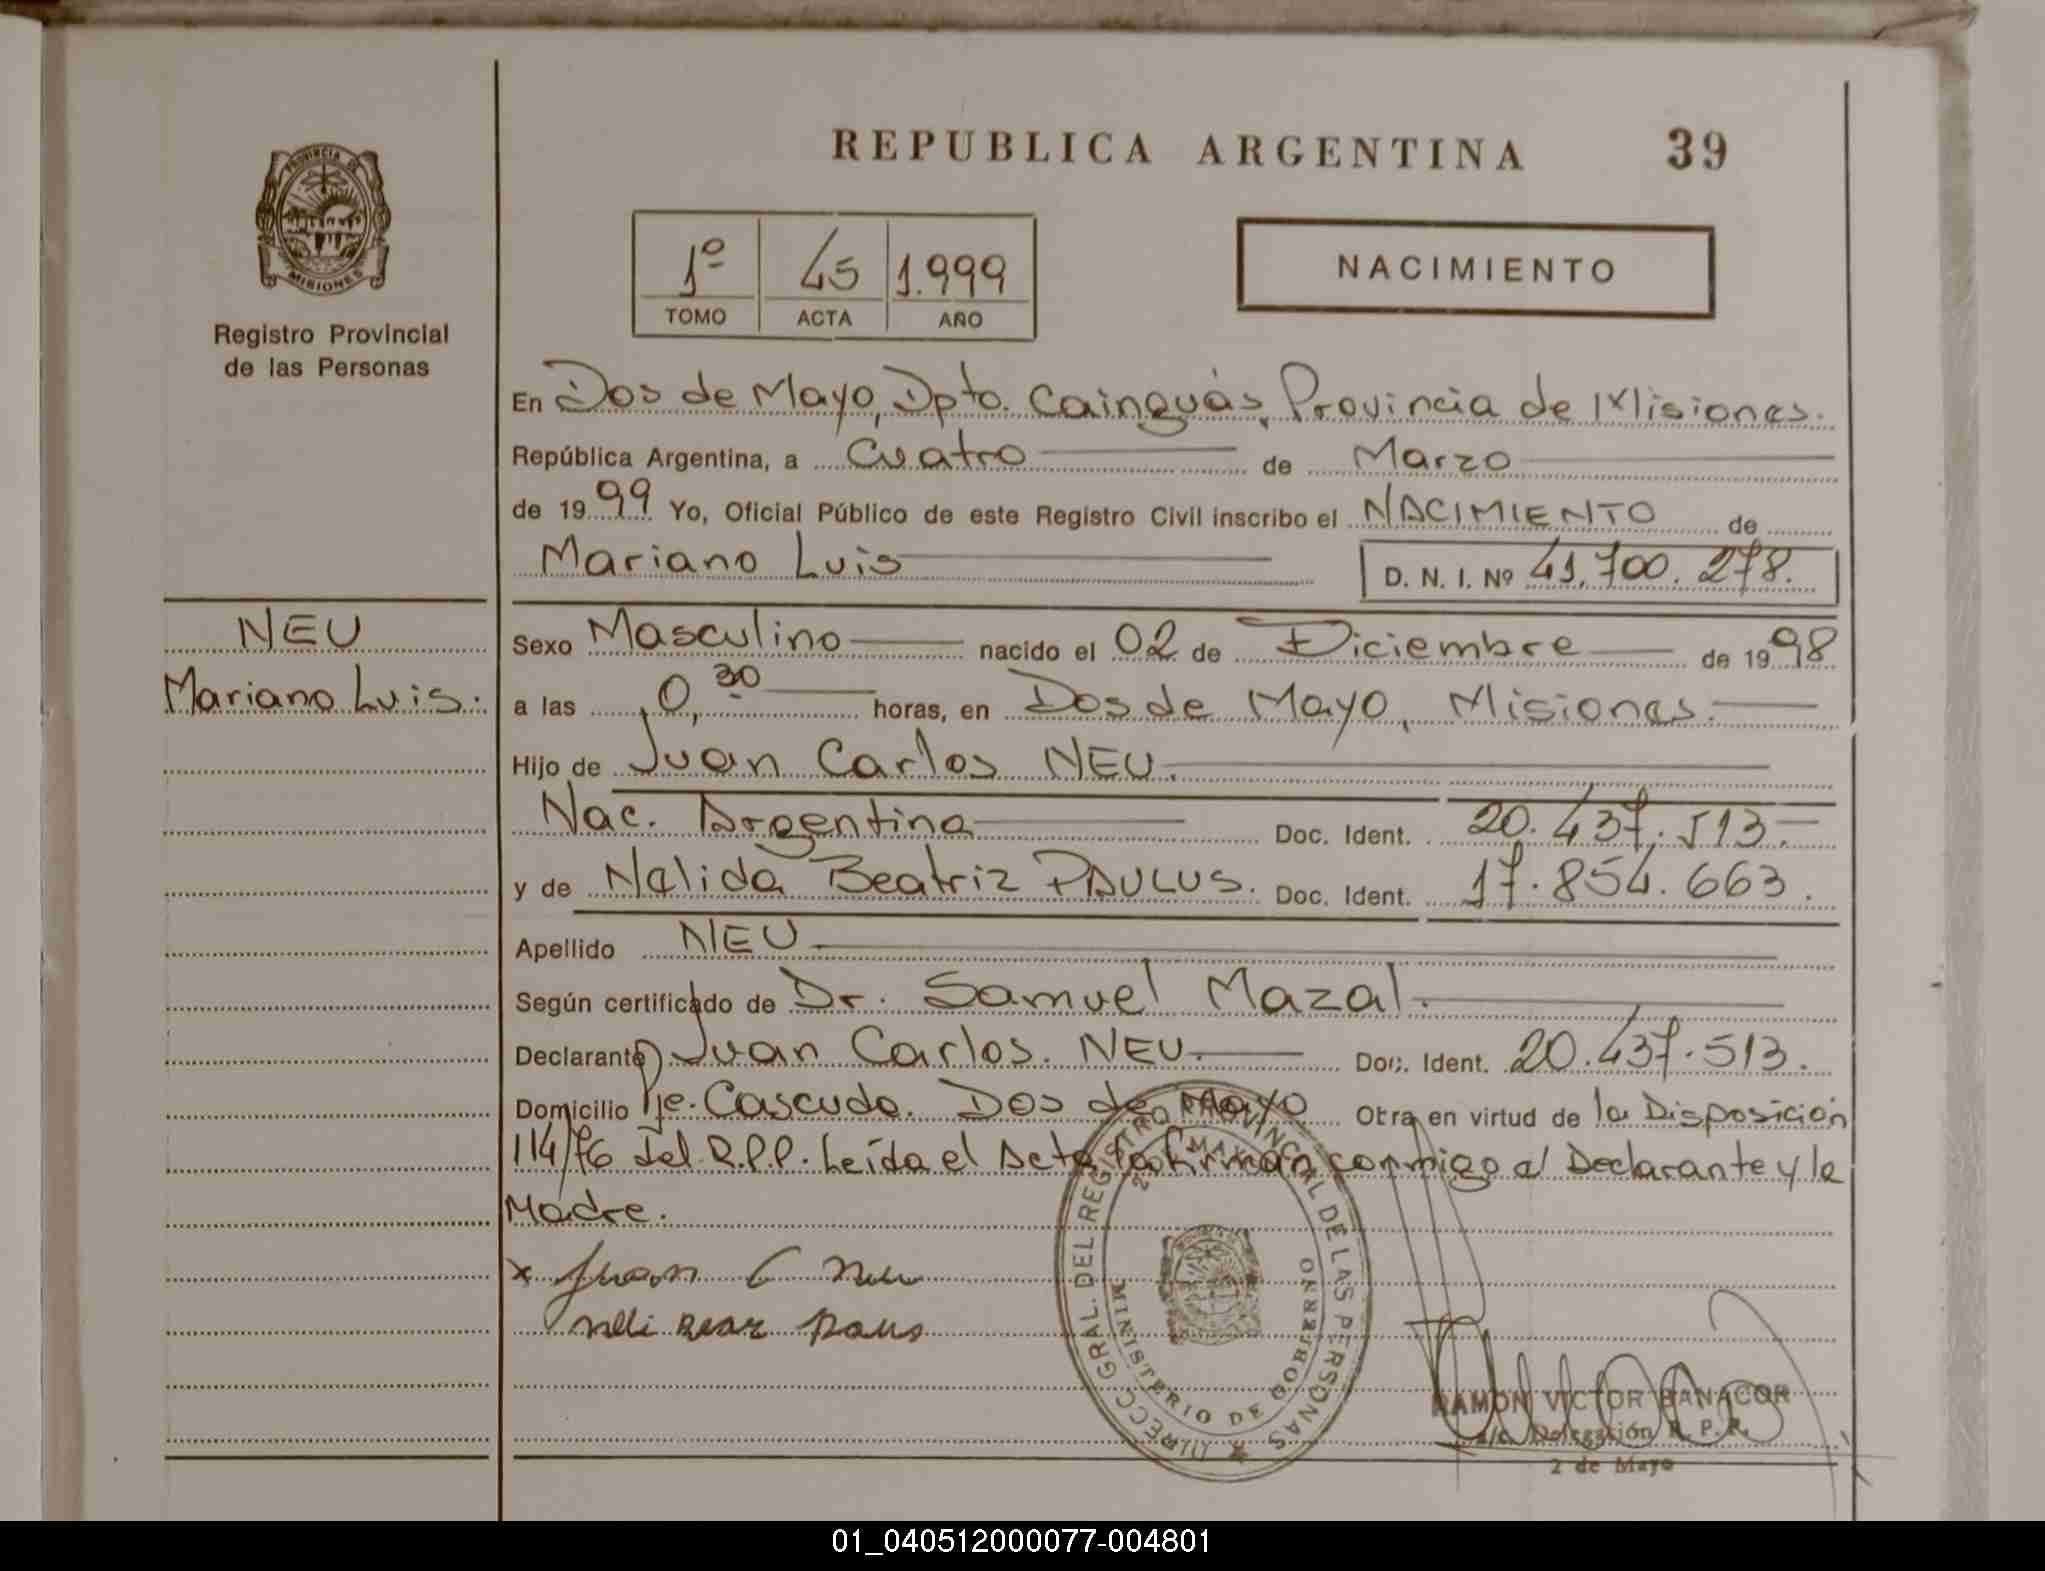 PROVINCIA DE
MISIONES
Registro Provincial
de las Personas
NEU
Mariano Luis.
REPUBLICA ARGENTINA 39
1º 45 1.999
TOMO ACTA AÑO
NACIMIENTO
En Dos de Mayo, Dpto. Cainguás, Provincia de Misiones.
República Argentina, a Cuatro de Marzo
de 1999 Yo, Oficial Público de este Registro Civil inscribo el NACIMIENTO de
Mariano Luis D. N. I. Nº 41.700.278.
Sexo Masculino nacido el 02 de Diciembre de 1998
a las 0,30 horas, en Dos de Mayo, Misiones.
Hijo de Juan Carlos NEU.
Nac. Argentina Doc. Ident. 20.437.513.
y de Nelida Beatriz PAULUS. Doc. Ident. 17.854.663.
Apellido NEU
Según certificado de Dr. Samuel Mazal.
Declarante Juan Carlos. NEU. Doc. Ident. 20.437.513.
Domicilio Pje. Cascudo. Dos de Mayo Otra en virtud de la Disposición
114/76 del R.P.P. Leída el Acta la firman conmigo el Declarante y la
Madre.
x Juan C Neu
DIRECC GRAL. DEL REGISTRO PROVINCIAL DE LAS PERSONAS
MINISTERIO DE GOBIERNO
RAMON VICTOR BANACOR
a/c Delegación R. P. P.
2 de Mayo
01_040512000077-004801